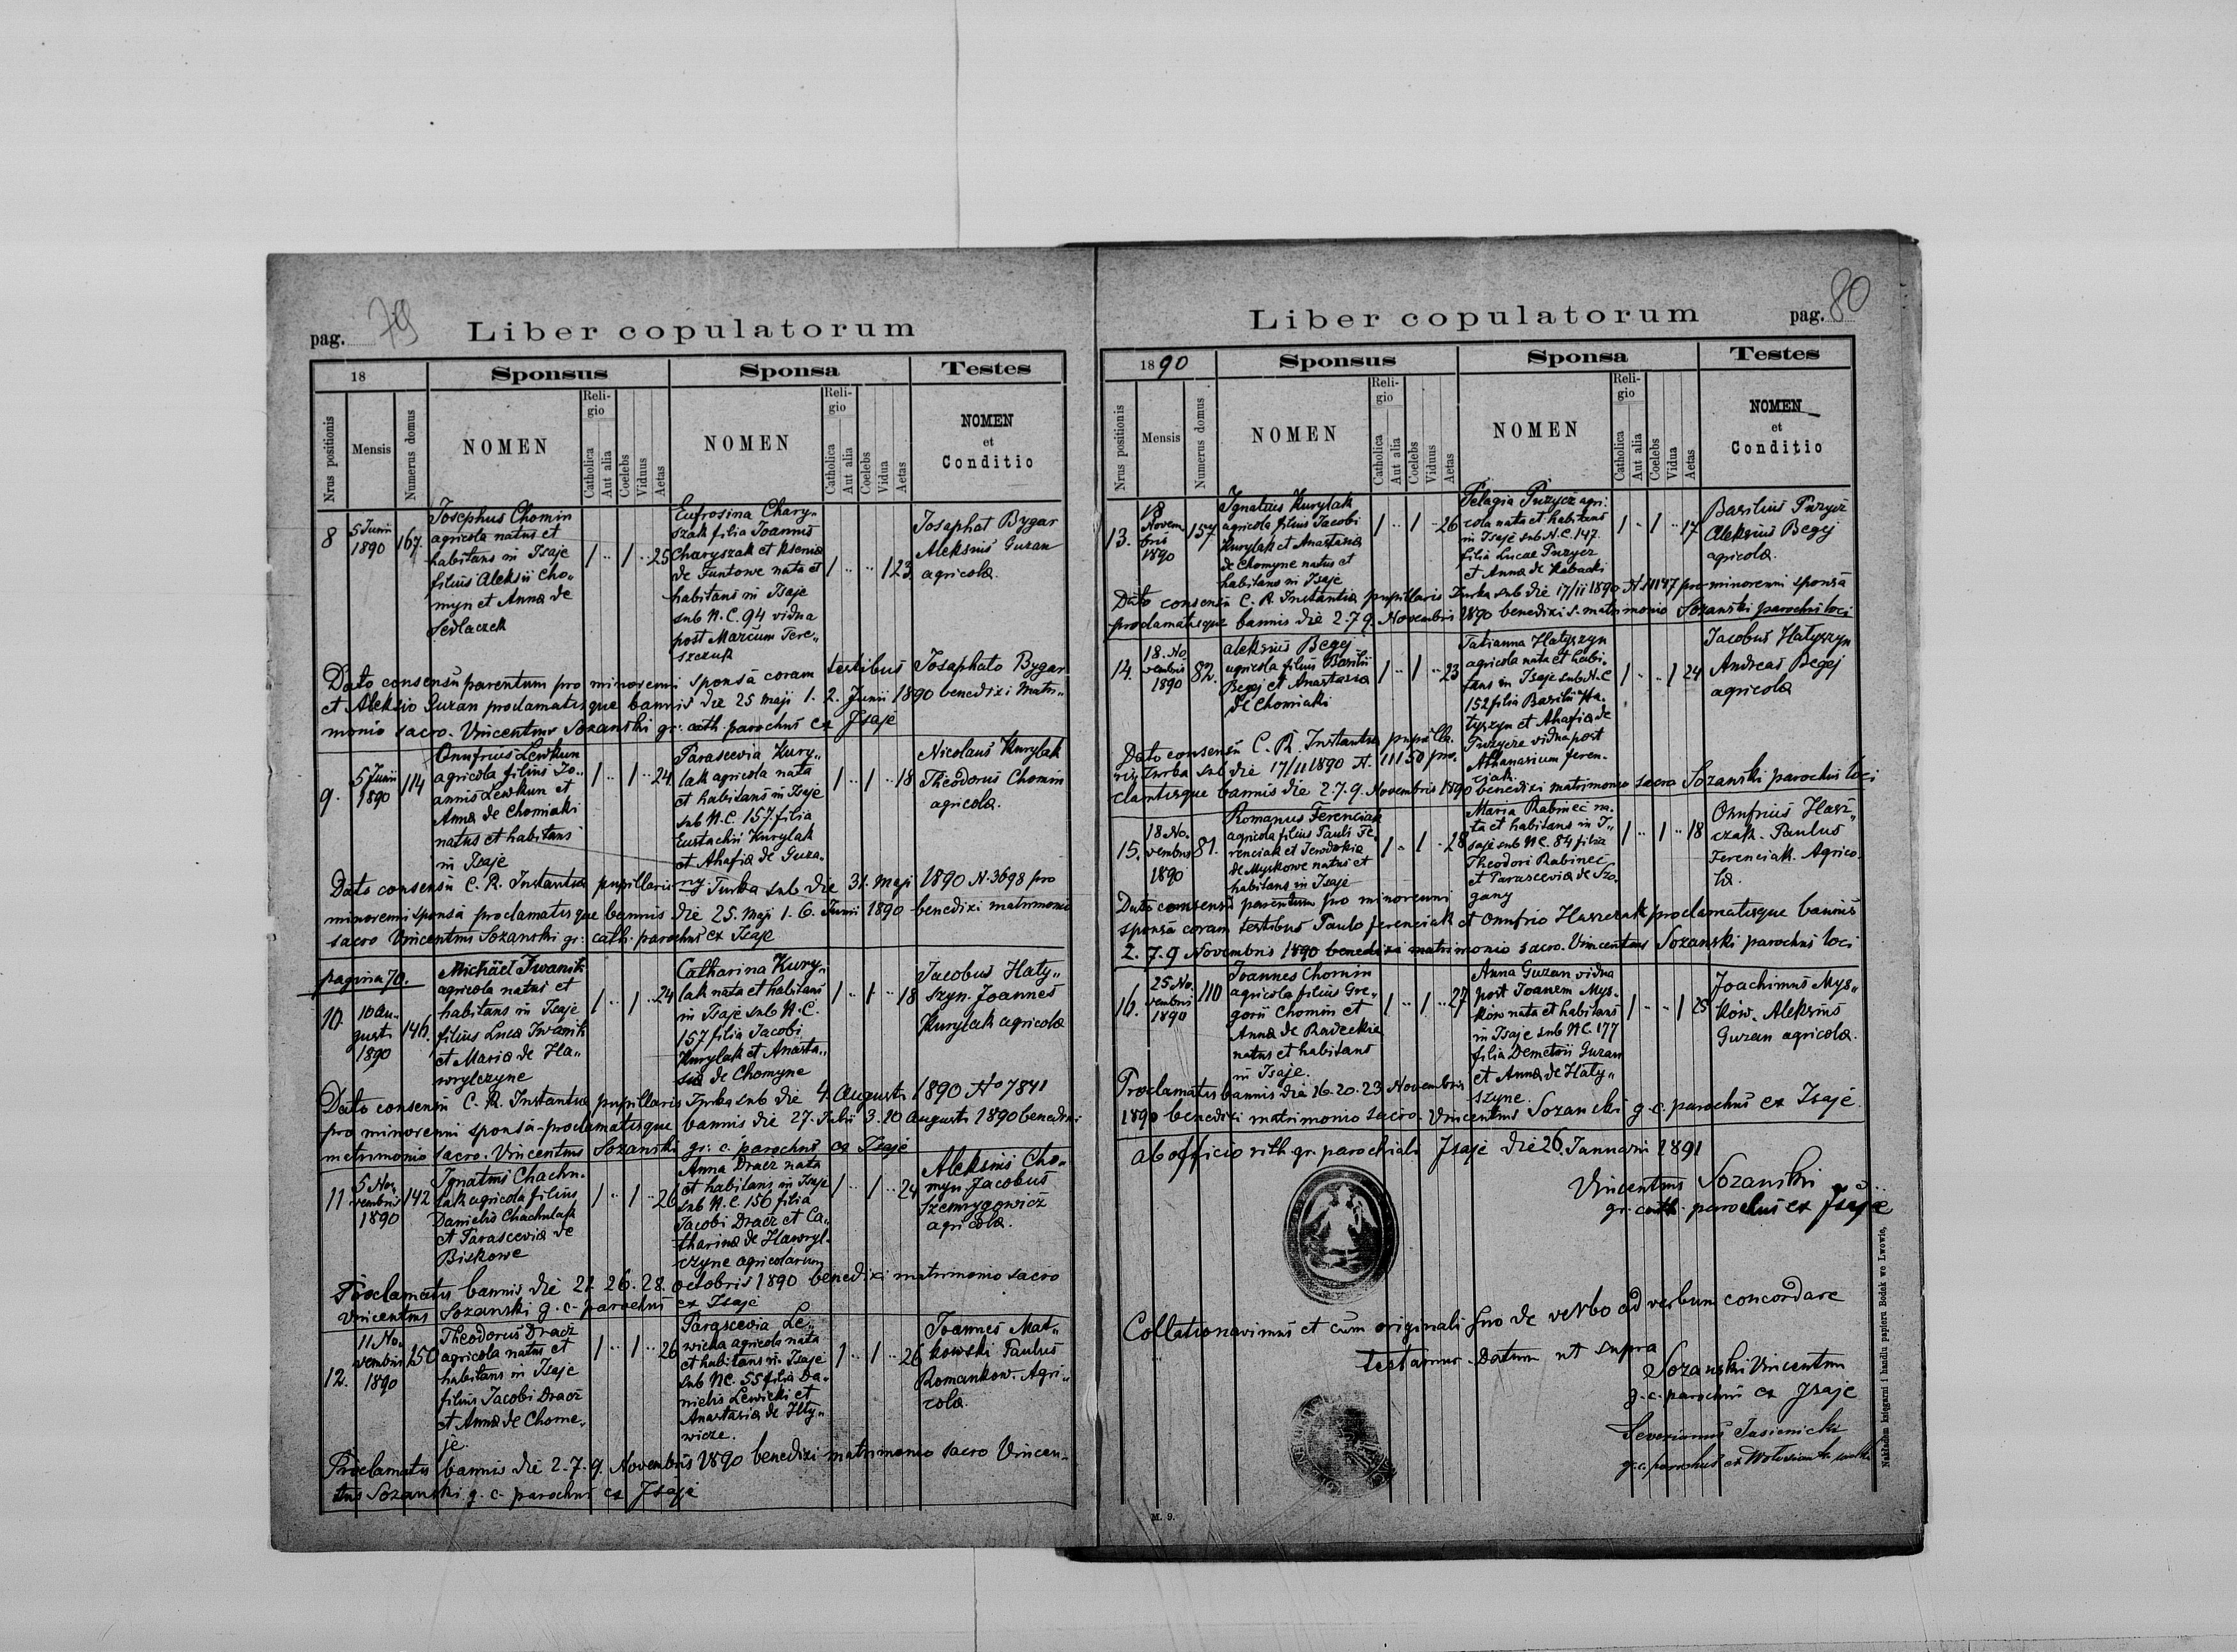 pag. 79
Liber copulatorum
18
Sponsus
Sponsa
Testes
Nrus positionis
Mensis
Numerus domus
NOMEN
Religio
Catholica
Aut alia
Coelebs
Viduus
Aetas
NOMEN
Religio
Catholica
Aut alia
Coelebs
Vidua
Aetas
NOMEN
et
Conditio
8
5 Junii
1890
167.
Josephus Chomin
agricola natus et
habitans in Isaje
filius Aleksii Cho„
myn et Anna de
Sedlaczek
1 .. 1 .. 25
Eufrosina Chary„
szak filia Joannis
Charyszak et Ksenia
de Funtowe nata et
habitans in Isaje
sub N.C. 94 vidua
post Marcum Tere„
szczuk
1 .. .. 1 23
Josaphat Bygar
Aleksius Guzan
agricola.
Dato consensu parentum pro minorenni sponsa coram testibus Josaphato Bygar
et Aleksio Guzan proclamatisque bannis die 25 maji 1. 2. Junii 1890 benedixi matri„
monio sacro. Vincentius Sozanski gr. cath. parochus ex Isaje
9.
5 Junii
1890
114
Onufrius Lewkun
agricola filius Jo„
annis Lewkun et
Anna de Chomiaki
natus et habitans
in Isaje
1 .. 1 .. 24
Parascevia Kury„
lak agricola nata
et habitans in Isaje
sub N.C. 157. filia
Eustachii Kurylak
et Ahafia de Guza„
ny
1 .. 1 .. 18
Nicolaus Kurylak
Theodorus Chomin
agricola.
Dato consensu C. R. Instantia pupillaris Turka sub die 31. Maji 1890 N. 3698 pro
minorenni sponsa proclamatisque bannis die 25. Maji 1. 6. Junii 1890 benedixi matrimonio
sacro Vincentius Sozanski gr. cath. parochus ex Isaje
pagina 70.
10.
10 Au„
gusti
1890
146.
Michael Iwanik
agricola natus et
habitans in Isaje
filius Luca Iwanik
et Maria de Ha„
wrylczyne
1 .. 1 .. 24
Catharina Kury„
lak nata et habitans
in Isaje sub N.C.
157 filia Jacobi
Kurylak et Anasta„
sia de Chomyne
1 .. 1 .. 18
Jacobus Haty„
szyn. Joannes
Kurylak agricola
Dato consensu C. R. Instantia pupillaris Turka sub die 4. Augusti 1890 No 7841
pro minorenni sponsa - proclamatisque bannis die 27. Julii 3. 10 Augusti 1890 benedixi
matrimonio sacro. Vincentius Sozanski gr. c. parochus ex Isaje
11.
5 No„
vembris
1890
142
Ignatius Chachu„
lak agricola filius
Danielis Chachulak
et Parascevia de
Biskowe
1 .. 1 .. 26
Anna Dracz nata
et habitans in Isaje
sub N.C. 150 filia
Jacobi Dracz et Ca„
tharina de Hawryl„
czyne agricolarum
1 .. 1 .. 24
Aleksius Cho„
myn Jacobus
agricola.
Proclamatis bannis die 21. 26. 28. octobris 1890 benedixi matrimonio sacro
Vincentius Sozanski g. c. parochus ex Isaje
12.
11 No„
vembris
1890
150
Theodorus Dracz
agricola natus et
habitans in Isaje
filius Jacobi Dracz
et Anna de Chome„
je.
1 .. 1 .. 26
Parascevia Le„
wicka agricola nata
et habitans in Isaje
sub NC. 55 filia Da„
nielis Lewicki et
Anastasia de Ilty„
wicze.
1 .. 1 .. 26
Joannes Mat„
kowski Paulus
Romankow. Agri„
cola.
Proclamatis bannis die 2. 7. 9. Novembris 1890 benedixi matrimonio sacro Vincen„
tius Sozanski g. c. parochus ex Isaje
Liber copulatorum
pag. 80
1890
Sponsus
Sponsa
Testes
Nrus positionis
Mensis
Numerus domus
NOMEN
Religio
Catholica
Aut alia
Coelebs
Viduus
Aetas
NOMEN
Religio
Catholica
Aut alia
Coelebs
Vidua
Aetas
NOMEN
et
Conditio
13.
18
Novem
bris
1890
157
Ignatius Kurylak
agricola filius Jacobi
Kurylak et Anastasia
de Chomyne natus et
habitans in Isaje
1 .. 1 .. 26
Pelagia Puzycz agri„
cola nata et habitans
in Isaje sub N.C. 147.
filia Lucae Puzycz
et Anna de Kabacki
1 .. 1 .. 17
Basilius Puzycz
Aleksius Begej
agricola.
Dato consensu C. R. Instantia pupillaris Turka sub die 17/11 1890 N. 11147 pro minorenni sponsa
proclamatisque bannis die 2. 7 9. Novembris 1890 benedixi s. matrimonio Sozanski parochus loci
14.
18. No
vembris
1890
82.
Aleksius Begej
agricola filius Basilii
Begej et Anastasia
de Chomiaki
1 .. 1 .. 23
Tatianna Hatyszyn
agricola nata et habi„
tans in Isaje sub N.C
152 filia Basilii Ha„
tyszyn et Ahafia de
Puzycze vidua post
Athanasium Feren„
ciak
1 .. .. 1 24
Jacobus Hatyszyn
Andreas Begej
agricola
Dato consensu C. R. Instantia pupilla„
ris Turka sub die 17/11 1890 N. 11150 pro„
clamatisque bannis die 2. 7. 9. Novembris 1890 benedixi matrimonio sacro Sozanski parochus loci
15.
18 No„
vembris
1890
81.
Romanus Ferenciak
agricola filius Pauli Fe„
renciak et Jewdokia
de Myskowe natus et
habitans in Isaje
1 .. 1 .. 28
Maria Rabinec na„
ta et habitans in I„
saje sub NC. 84 filia
Theodori Rabinec
et Parascevia de Szo„
gany
1 .. 1 .. 18
Onufrius Hasz„
czak. Paulus
Ferenciak. Agrico„
la.
Dato consensu parentum pro minorenni
sponsa coram testibus Paulo Ferenciak et Onufrio Haszczak proclamatisque bannis
2. 7. 9 Novembris 1890 benedixi matrimonio sacro. Vincentius Sozanski parochus loci
16.
25 No„
vembris
1890
110
Joannes Chomin
agricola filius Gre„
gorii Chomin et
Anna de Radzekie
natus et habitans
in Isaje.
1 .. 1 .. 27
Anna Guzan vidua
post Joanem Mys„
ków nata et habitans
in Isaje sub NC. 177
filia Demetrii Guzan
et Anna de Haty„
szyne.
1 .. .. 1 25
Joachimus Mys„
ków. Aleksius
Guzan agricola.
Proclamatis bannis die 16. 20. 23 Novembris
1890 benedixi matrimonio sacro. Vincentius Sozanski g. c. parochus ex Isaje.
Ab officio rith. gr. parochiali Isaje die 26. Januarii 1891
Vincentius Sozanski
gr. cath. parochus ex Isaje
Collationavimus et cum originali suo de verbo ad verbum concordare
testamur. Datum ut supra
Sozanski Vincentius
g. c. parochus ex Isaje
Severianus Jasienicki
g. c. parochus ex
Nakładem księgarni i handlu papieru Bodek we Lwowie.
M. 9.